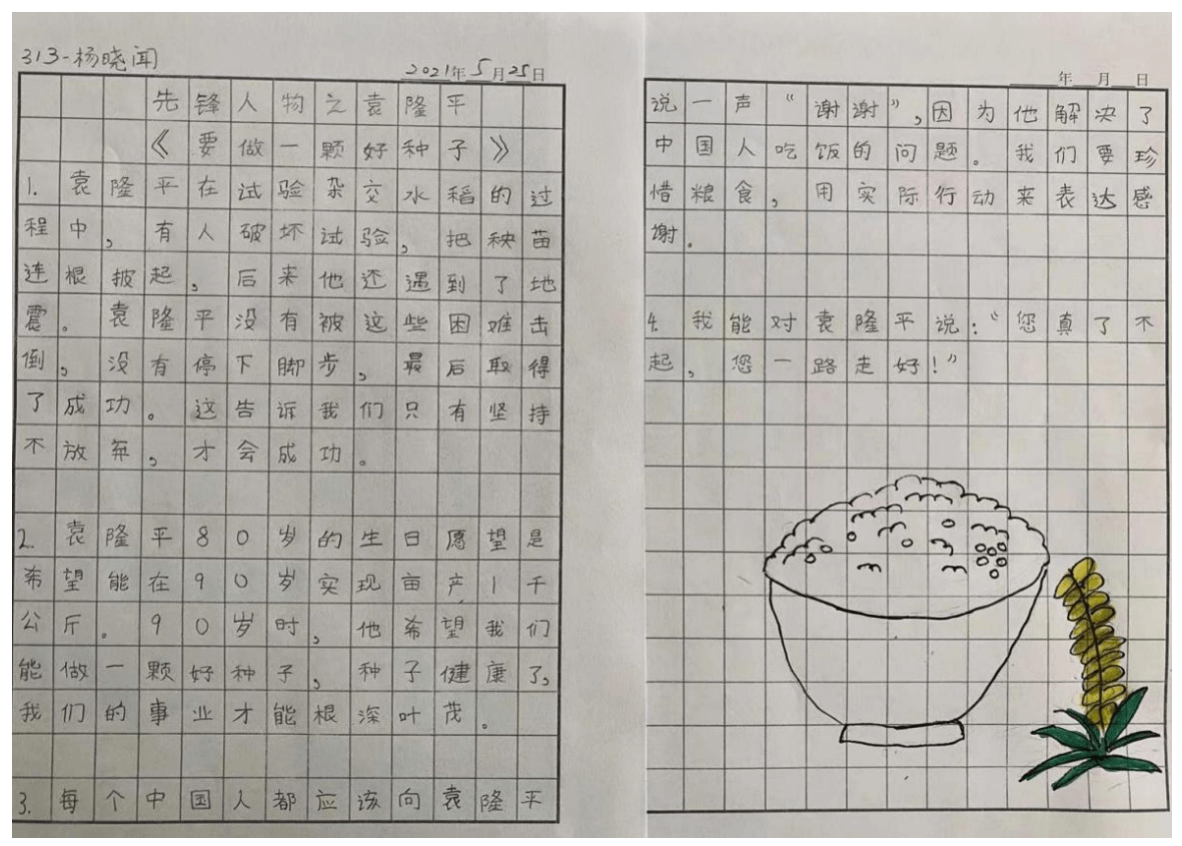 313-杨晓闻
2021年5月25日
先锋人物之袁隆平
《要做一颗好种子》
1.袁隆平在试验杂交水稻的过
程中,有人破坏试验,把秧苗
连根披起,后来他还遇到了地
震。袁隆平没有被这些困难击
倒,没有停下脚步,最后取得
了成功。这告诉我们只有坚持
不放弃,才会成功。
2.袁隆平80岁的生日愿望是
希望能在90岁实现亩产1千
公斤。90岁时,他希望我们
能做一颗好种子,种子健康了,
我们的事业才能根深叶茂。
3.每个中国人都应该向袁隆平
年 月 日
说一声“谢谢”,因为他解决了
中国人吃饭的问题。我们要珍
惜粮食,用实际行动来表达感
谢。
4.我能对袁隆平说:“您真了不
起,您一路走好!”